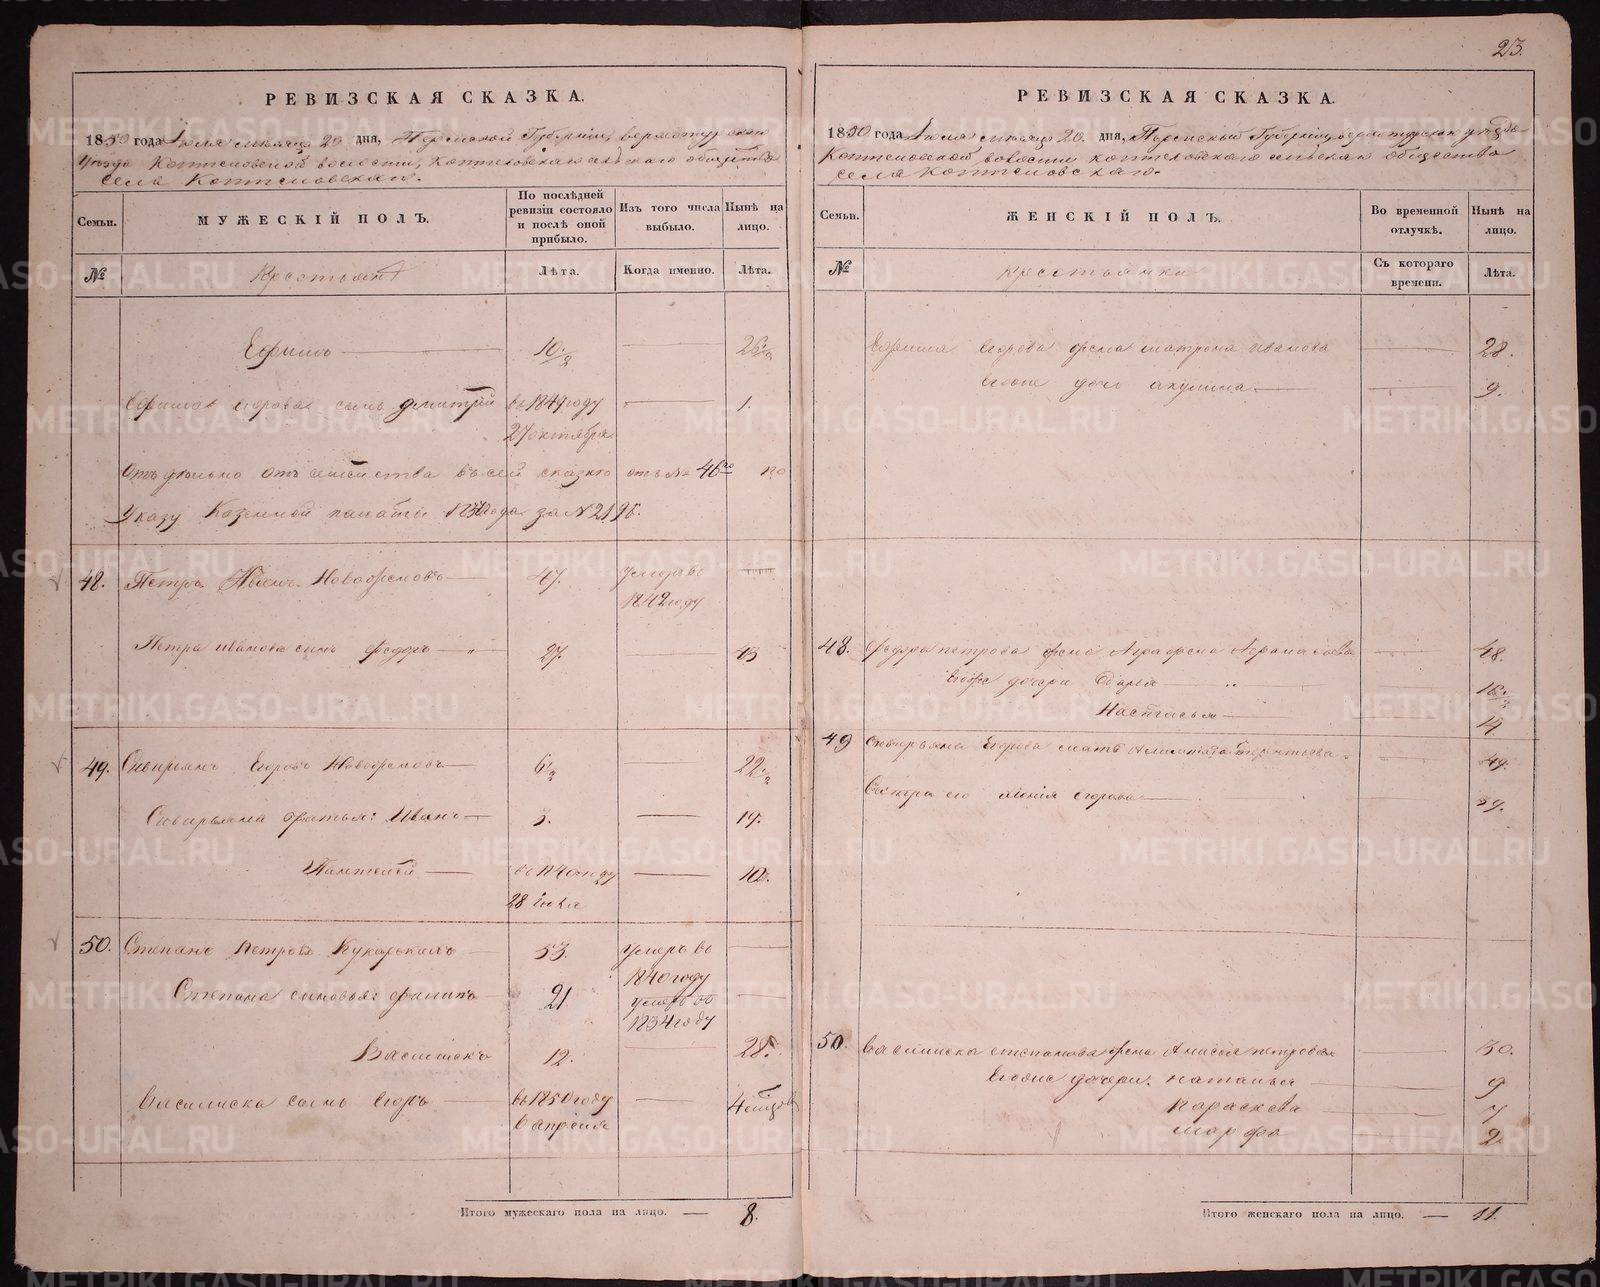 23.
РЕВИЗСКАЯ СКАЗКА.
1850 года Июля месяца 20 дня, Пермской Губернии, верхотурскаго
уезда Коптеловской волости, Коптеловскаго сельскаго общества
села Коптеловскаго.
Семьи. МУЖЕСКІЙ ПОЛЪ. По послѣдней ревизіи состояло и послѣ оной прибыло. Изъ того числа выбыло. Нынѣ на лицо.
№ Крестьяне Лѣта. Когда именно. Лѣта.
Ефимъ 10 1/2 26 1/2
Ефима егорова сынъ дмитрій въ 1849 году 1.
27 октября
Отдѣльно отъ семейства въ сей сказкѣ отъ № 46го по
Указу Казенной палаты года за № 2195.
48. Петръ Новоженовъ 47. умеръ въ
1842 году
Петра иванова сынъ федоръ 27. 43
49. Северьянъ Егоровъ Новоженовъ 6 1/2 22 1/2
Северьяна братья: Иванъ 3. 19.
Пантелей въ 1840 году 10.
28 июля
50. Степанъ Петровъ Кукарькинъ 53. умеръ въ
1840 году
Степана сыновья: филипъ 21 умеръ въ
1834 году
Василискъ 12. 28.
Василиска сынъ егоръ въ 1850 году
6 апреля
Итого мужескаго пола на лицо. — 8.
РЕВИЗСКАЯ СКАЗКА.
1850 года Июля месяца 20. дня, Пермской Губернии верхотурскаго уезда
Коптеловской волости коптеловскаго сельскаго общества
села коптеловскаго.
Семьи. ЖЕНСКІЙ ПОЛЪ. Во временной отлучкѣ. Нынѣ на лицо.
№ Крестьянки Съ котораго времени. Лѣта.
Ефима егорова жена матрона иванова 28.
егоже дочь акулина 9.
48. федора петрова жена Аграфена 48.
Егоже дочери Дарья 16 1/2
Настасья 14
49 Северьяна Егорова мать терентьева 49.
Сестра его егорова
50. Василиска степанова жена Анисья петрова 30.
Егоже дочери: наталья 9
Параскева 7
Марфа 2.
Итого женскаго пола на лицо. — 11.
METRIKI.GASO-URAL.RU